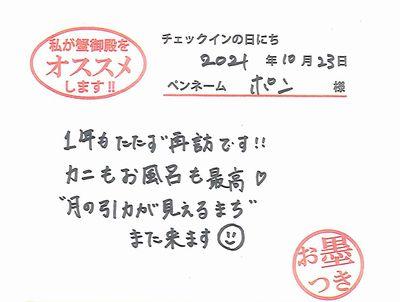 私が蟹御殿を
オススメ
します!!
チェックインの日にち
2021 年 10 月 23 日
ペンネーム ポン 様
1年もたたず再訪です!!
カニもお風呂も最高♡
"月の引力が見えるまち"
また来ます☺
お墨
つき